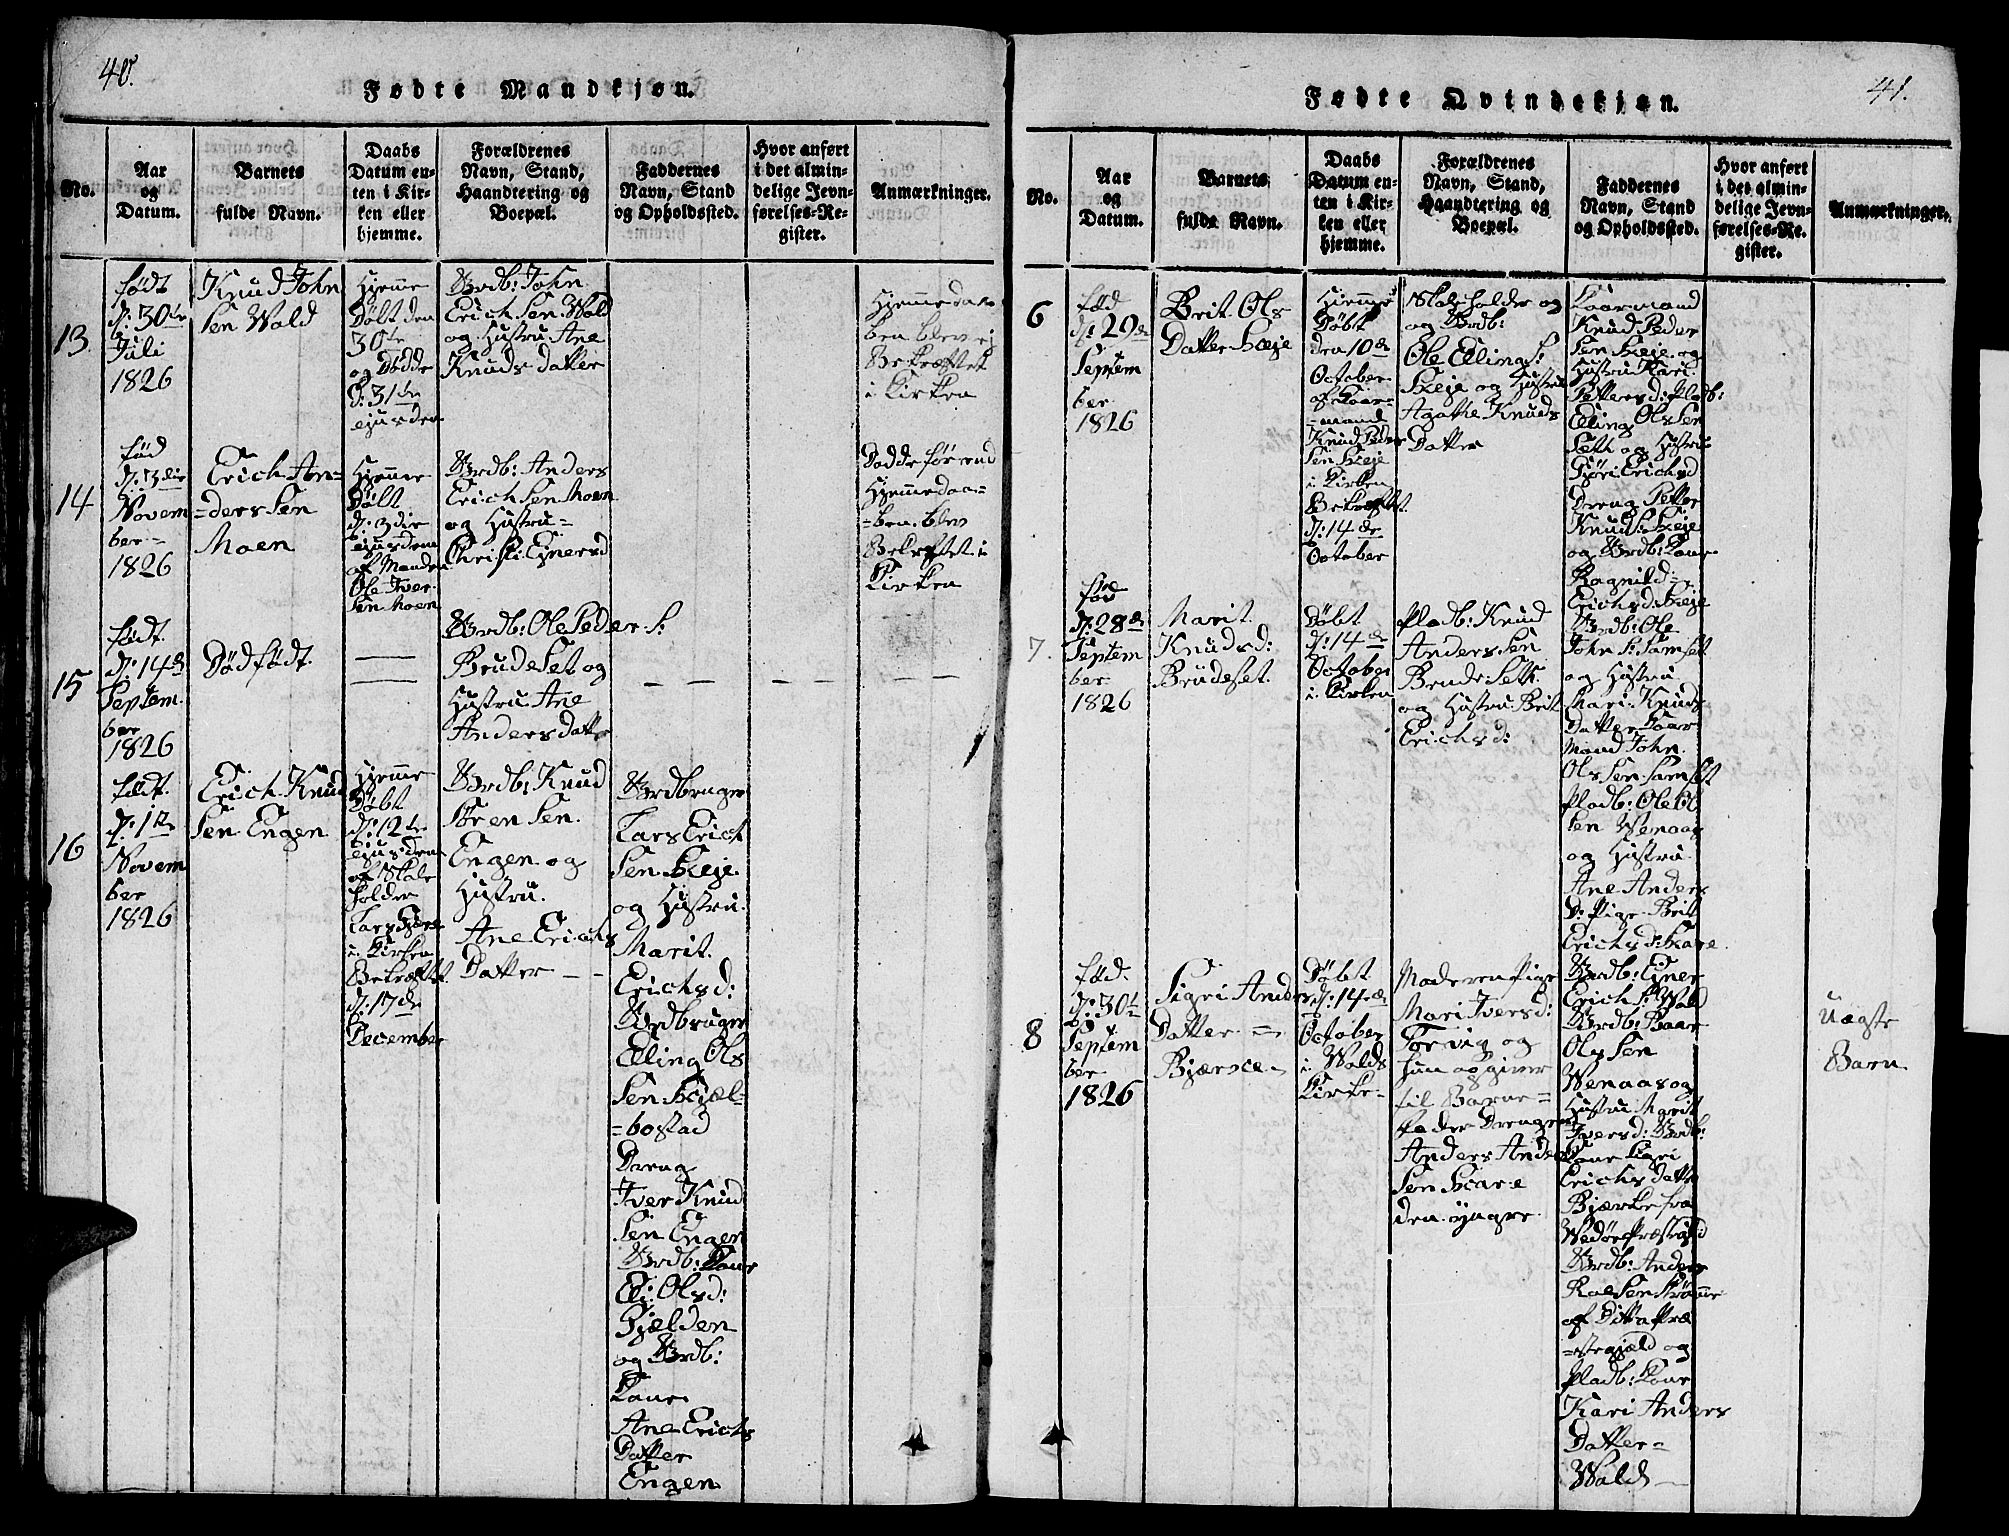 40.
Fødte Mandkjøn.
No.
Aar
og
Datum.
Barnets
fulde Navn.
Daabs
Datum en-
ten i Kir-
ken eller
hjemme.
Forældrenes
Navn, Stand,
Haandtering og
Boepæl.
Faddernes
Navn, Stand
og Opholdssted.
Hvor anført
i det almin-
delige Jevn-
førelses-Re-
gister.
Anmærkninger.
13.
født
d: 30te
Juli
1826
Knud John
Sen Wold
Hjemme
Døbt den
30te
og Dødde
d: 31de
ejusdem
Brdb: John
Erich Sen Wold
og Hustru Ane
Knuds datter
Hjemmedaa-
ben blev ej
Bekræftet
i Kirken
14
fød
d: 3die
Novem
ber
1826
Erich An=
=ders Sen
Moen
Hjemme
Døbt
d: 3die
ejusdem
af Manden
Ole Iver
Sen Moen
Brdb: Anders
Erich Sen Moen
og Hustru=
Christi Ejnersd
Dødde før end
Hjemmedaa=
=ben blev
Bekræftet i
Kirken
15
født.
d: 14de
Septem
ber
1826
Dødfødt.
Brdb: Ole Peder S:
BrudeSet og
Hustru Ane
Anders datter
16
født.
d: 1te
Novem
ber
1826
Erich Knud
Sen Engen
Hjemme
Døbt
d: 12te
ejusdem
af Skole
holder
Lars
i Kirken
Bekræftet
d: 17de
December
Brdb: Knud
Sören Sen
Engen og
Hustru
Ane Erichs
Datter
Brdbruger
Lars Erich
Sen Skeje
og Hustru
Marit
Erichsd:
Brdbruger
Elling Ols
Sen Skjæl=
=bostad
Dreng
Iver Knud
Sen Engen
Brdb: Kone
Eli Olsd:
Fjælden
og Brdb:
Kone
Ane Erichs
Datter
Engen
41.
Fødte Qvindekjøn.
No.
Aar
og
Datum.
Barnets
fulde Navn.
Daabs
Datum en-
ten i Kir-
ken eller
hjemme.
Forældrenes
Navn, Stand,
Haandtering og
Boepæl.
Faddernes
Navn, Stand
og Opholdssted.
Hvor anført
i det almin-
delige Jevn-
førelses-Re-
gister.
Anmærkninger.
6
fød
d: 29de
Septem
ber
1826
Brit Ols
Datter Skeje
Hjemme
Døbt
den 10de
October
af Kaar=
=mand
Knud Peder
Sen Skeje
i Kirken
Bekræftet
d: 14de
October
Skoleholder og
og Brdb:
Ole Elling S:
Skeje og Hustru
Agathe Knuds
Datter
Kaarmand
Knud Peder
Sen Skeje og
Hustru Kari
Pettersd: Pladb:
Elling Ols Sen
Seth og Hustru
Gjöri Erichsd
Dreng Petter
Knud S: Skeje
og Brdb: Kone
Ragnild=
Erichsd: Skeje
7.
fød
d: 28de
Septem
ber
1826
Marit
Knudsd:
Brüdeset
Døbt
d: 14de
October
i Kirken
Pladb: Knud
Anders Sen
Brude Seth
og Hustru Brit
Erichsd:
Brdb: Ole
John S: Samset
og Hustru
Mari Knuds
Datter Kaar
Mand John
Ols Sen Samset
Pladb: Ole Ol
Sen Wenaas
og Hustru
Ane Anders
D: Pige Brit
Erichsd: Skare
8
fød.
d: 30te
Septem
ber
1826
Sigri Anders
Datter =
Bjærke
Døbt
d: 14de
October
i Wolds
Kirke
Moderen Pige
Mari Iversd:
Torvig og
hun opgiver
til Barne=
fader Drengen
Anders Anders
Sen Skare
den yngre
Brdb: Ejner
Erich S: Wold
Brdb: Baar
Ols Sen
Wenaas og
Hustru Marit
Iversd: Brdb:
Kone Kari
Erichs datter
Bjærke fra
Wedöe Præstegjæld
Brdb: Anders
Roe Sen
af Ditto Præ
=stegjæld og
Pladb: Kone
Kari Anders
Datter=
Wold
Uægte
Barn